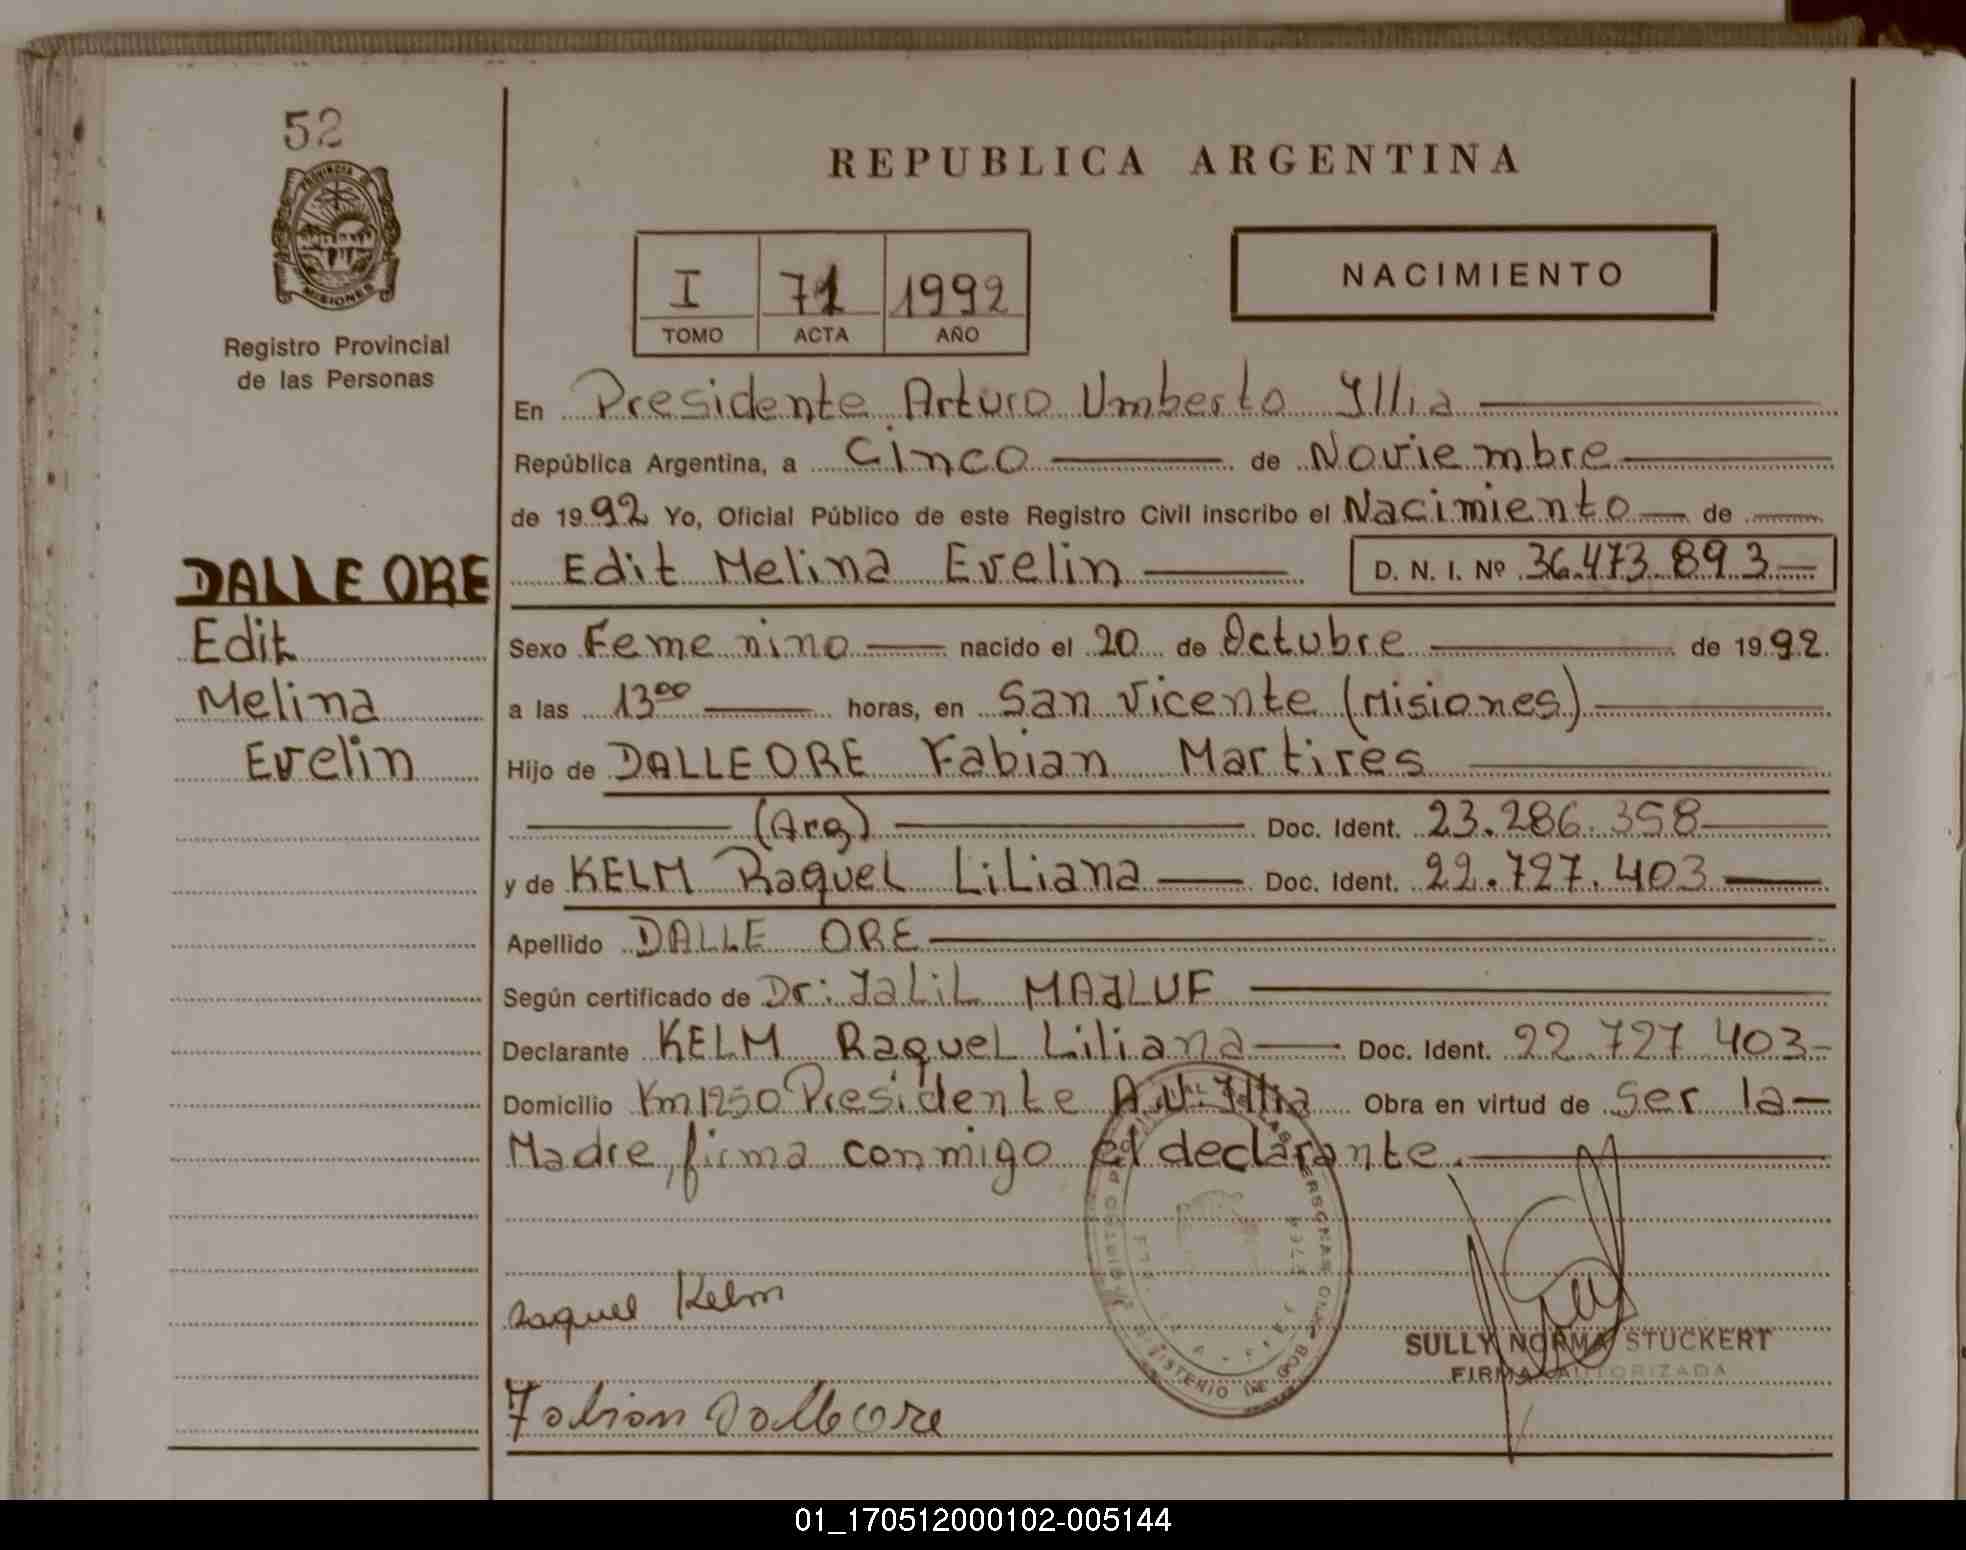 52
PROVINCIA DE
MISIONES
Registro Provincial
de las Personas
REPUBLICA ARGENTINA
I 71 1992
TOMO ACTA AÑO
NACIMIENTO
En Presidente Arturo Umberto Illia
República Argentina, a Cinco de Noviembre
de 1992 Yo, Oficial Público de este Registro Civil inscribo el Nacimiento de
Edit Melina Evelin D. N. I. Nº 36.473.893
DALLE ORE
Edit
Melina
Evelin
Sexo Femenino nacido el 20 de Octubre de 1992.
a las 13⁰⁰ horas, en San Vicente (Misiones)
Hijo de DALLE ORE Fabian Martires
(Arg) Doc. Ident. 23.286.358
y de KELM Raquel Liliana Doc. Ident. 22.727.403
Apellido DALLE ORE
Según certificado de Dr: Jalil MAJLUF
Declarante KELM Raquel Liliana Doc. Ident. 22.727.403
Domicilio Km 1250 Presidente A.U. Illia Obra en virtud de ser la
Madre, firma conmigo el declarante.
Raquel Kelm
SULLY NORMA STUCKERT
FIRMA AUTORIZADA
Fabian Dalle ore
01_170512000102-005144